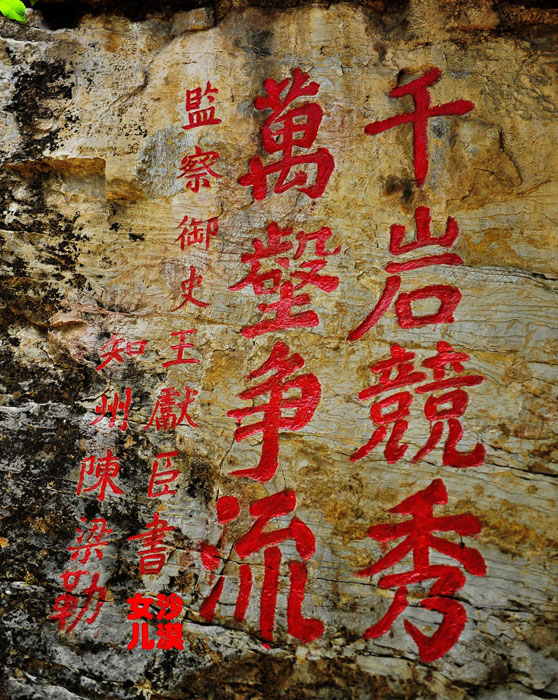 千岩競秀
萬壑争流
監察御史王獻臣書
知州陳梁勒
沙漠
女儿